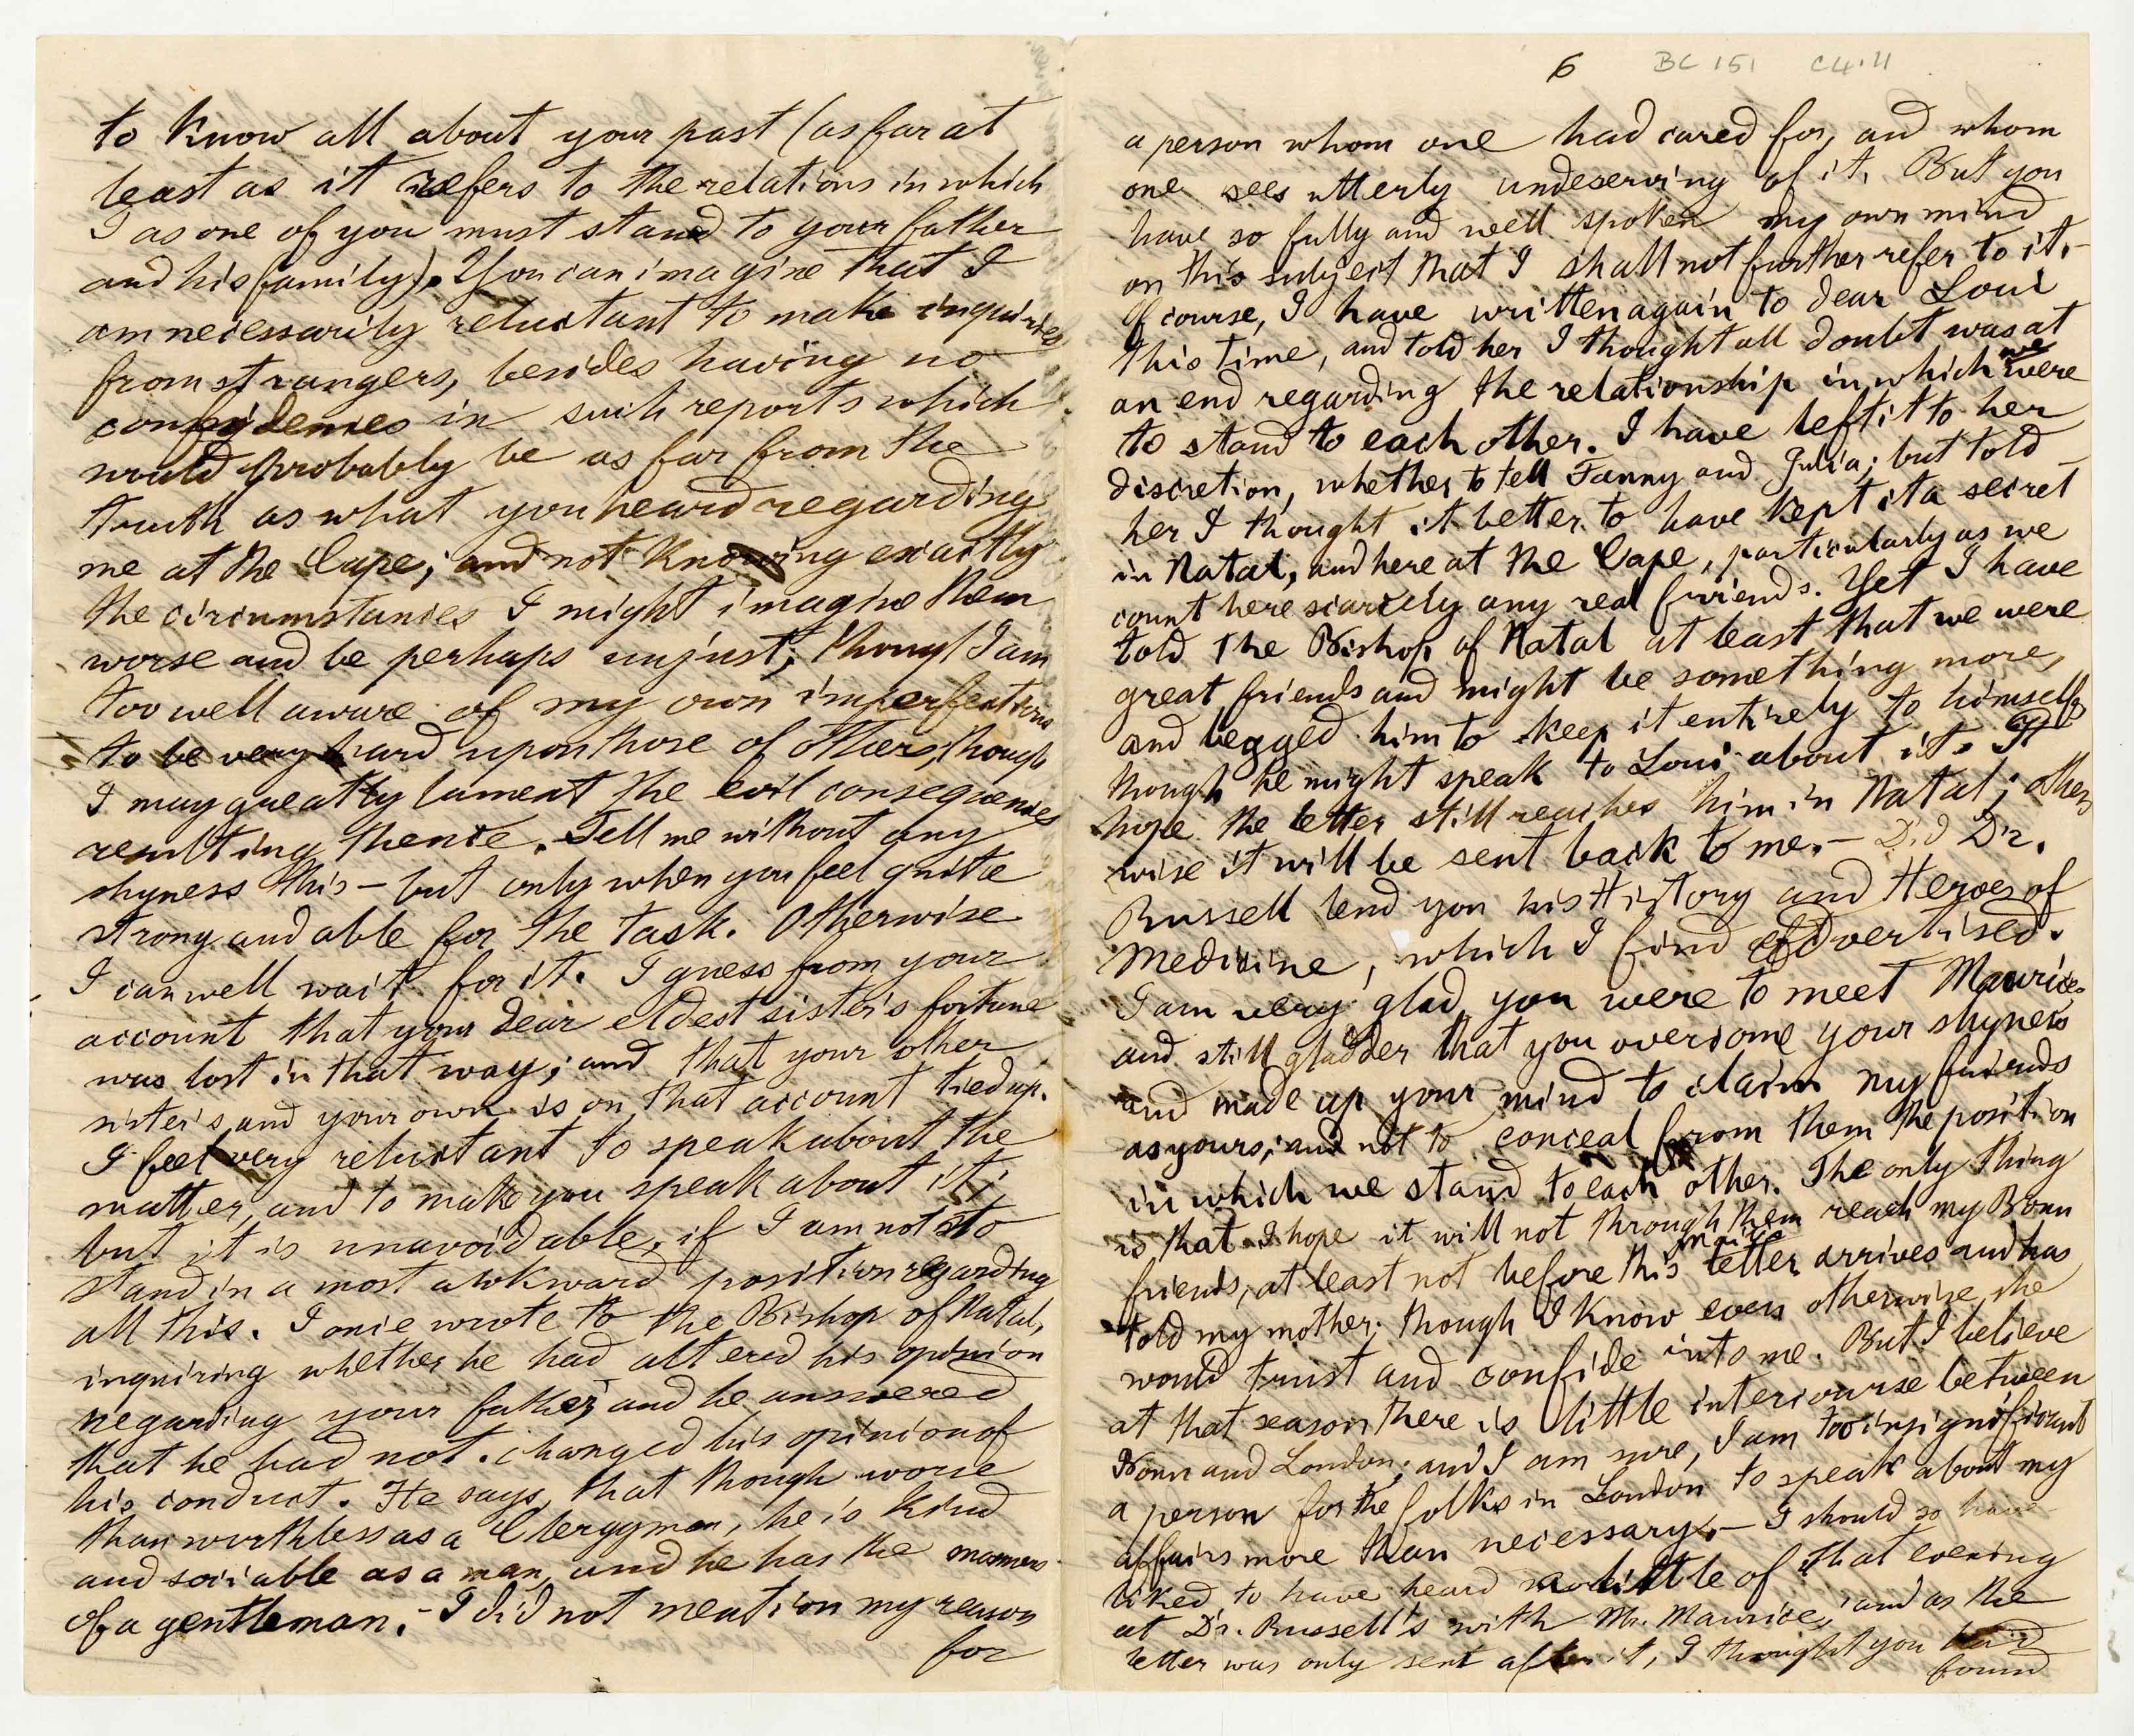 to know all about your past (as far at
least as it refers to the relations in which
I as one of you must stand to your father
and his family). You can imagine that I
am necessarily reluctant to make inquiries
from strangers, besides having no
confidences in such reports which
would probably be as far from the
truth as what you heard regarding
me at the Cape; and not knowing exactly
the circumstances I might imagine them
worse and be perhaps unjust; though I am
too well aware of my own imperfections
to be very hard upon those of others, though
I may greatly lament the evil consequences
resulting thence. Tell me without any
shyness this – but only when you feel quite
strong and able for the task. Otherwise
I can well wait for it. I guess from your
account that your dear eldest sister's fortune
was lost in that way; and that your other
sister's and your own is on that account tied up.
I feel very reluctant to speak about the
matter, and to make you speak about it;
but it is unavoidable, if I am not to
stand in a most awkward position regarding
all this. I once wrote to the Bishop of Natal,
inquiring whether he had altered his opinion
regarding your father, and he answered
that he had not changed his opinion of
his conduct. He says, that though worse
than worthless as a Clergyman, he is kind
and sociable as a man, and he has the manners
of a gentleman. – I did not mention my reason
for
6 BC 151 C4.11
a person whom one had cared for, and whom
one sees utterly undeserving of it. But you
have so fully and well spoken my own mind
on this subject that I shall not further refer to it. –
Of course, I have written again to dear Loui
this time, and told her I thought all doubt was at
an end regarding the relationship in which we were
to stand to each other. I have left it to her
discretion, whether to tell Fanny and Julia; but told
her I thought it better to have kept it a secret
in Natal, and here at the Cape, particularly as we
count here scarcely any real friends. Yet I have
told the Bishop of Natal at least that we were
great friends and might be something more,
and begged him to keep it entirely to himself,
though he might speak to Loui about it. I
hope the letter still reaches him in Natal; other
wise it will be sent back to me. – Did Dr.
Russell lend you his History and Heroes of
Medicine, which I find advertised.
I am very glad you were to meet Maurice
and still gladder that you overcome your shyness
and made up your mind to claim my friends
as yours; and not to conceal from them the position
in which we stand to each other. The only thing
is that I hope it will not through them reach my Bonn
friends, at least not before this my letter arrives and has
told my mother; though I know even otherwise, she
would trust and confide into me. But I believe
at that season there is little intercourse between
Bonn and London; and I am sure, I am too insignificant
a person for the folks in London to speak about my
affairs more than necessary. – I should so have
liked to have heard a little of that evening
at Dr. Russell's with Mr. Maurice, and as the
letter was only sent after it, I thought you had
found